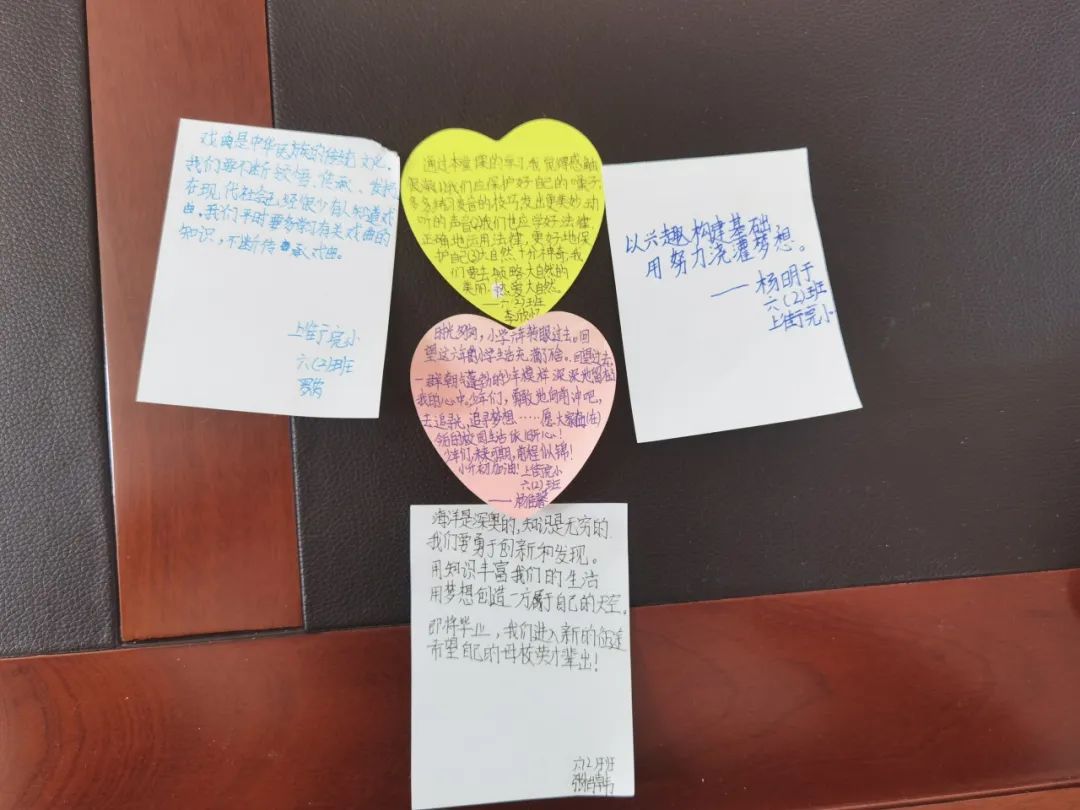 戏曲是中华民族的传统文化,
我们要不断领悟、传承、发扬
在现代社会已经很少有人知道戏
曲,我们平时要多学习有关戏曲的
知识,不断传承戏曲。
上街完小
六(2)班
通过本堂课的学习,我觉得感触
很深(1)我们应保护好自己的嗓子,
多多练习发音的技巧,发出更美妙、动
听的声音(2)我们也应学好法律,
正确地运用法律,更好地保
护自己(3)大自然十分神奇,我
们要去领略大自然的
美丽,热爱大自然。
——六(2)班
李欣
以兴趣构建基础,
用努力浇灌梦想。
——杨明于
六(2)班
上街完小
时光匆匆,小学六年转眼过去。回
望这六年的小学生活充满了。回望过去,
一群朝气蓬勃的少年模样深深地留在
我的心中。少年们,勇敢地向前冲吧,
去追寻光,追寻梦想……愿大家(在)
今后的校园生活依旧开心!
少年们,未来可期,前程似锦!
小升初加油!上街完小
六(2)班
——杨佳馨
海洋是深奥的,知识是无穷的.
我们要勇于创新和发现。
用知识丰富我们的生活
用梦想创造一方属于自己的天空。
即将毕业,我们进入新的征途
希望自己的母校英才辈出!
六(2)班